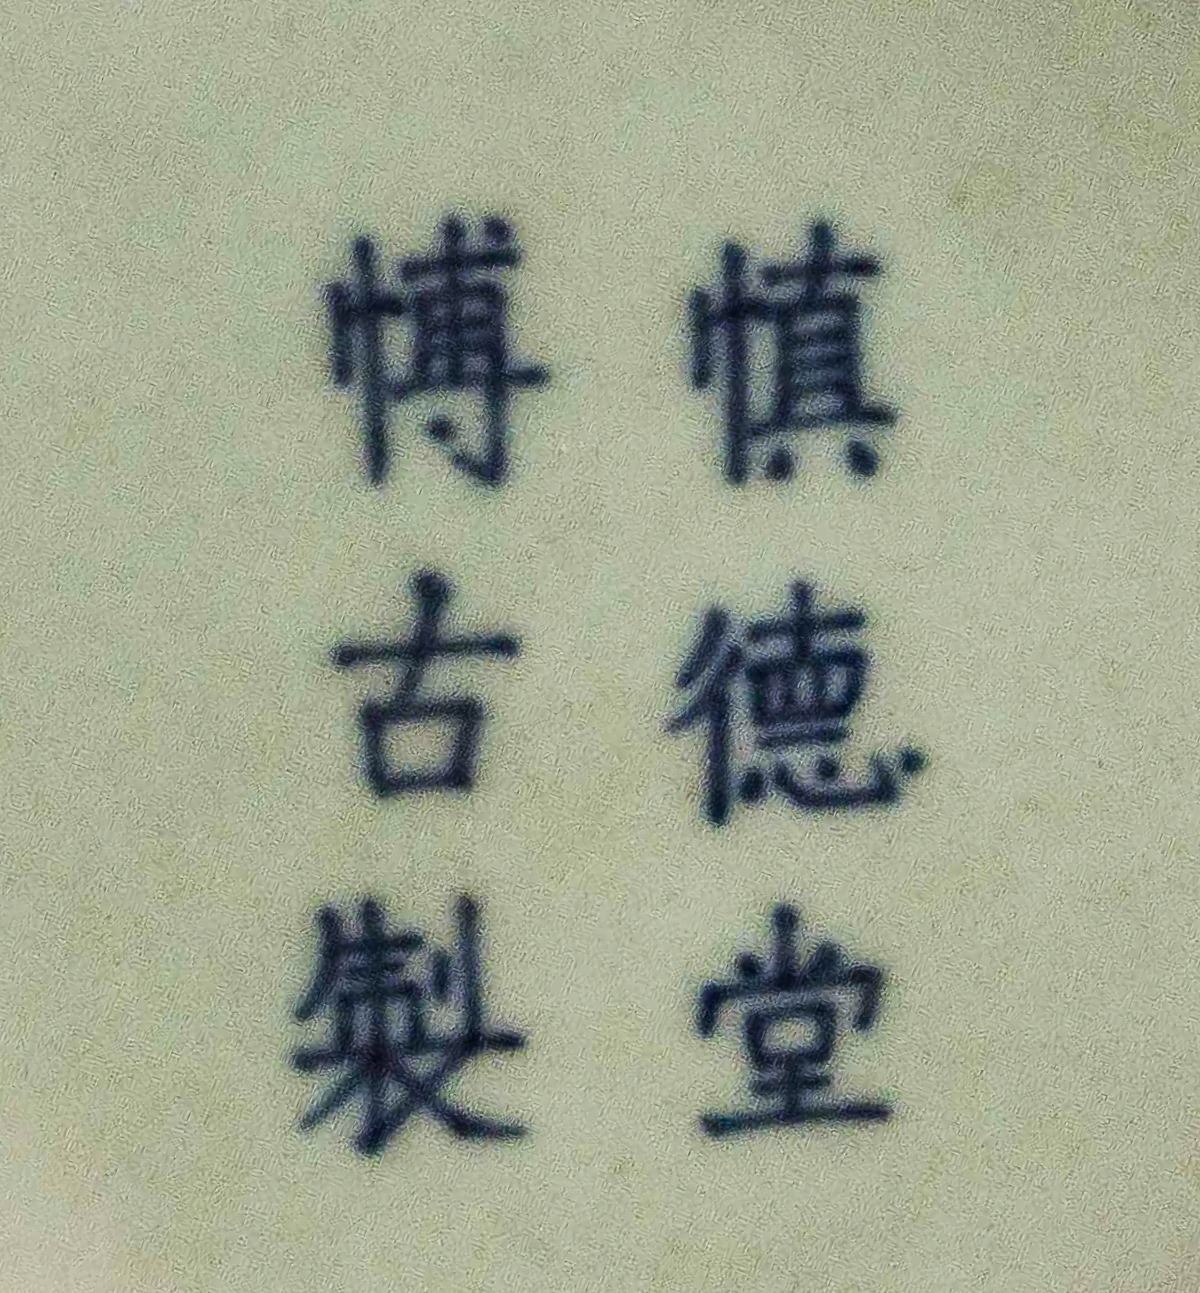 慎德堂
愽古製